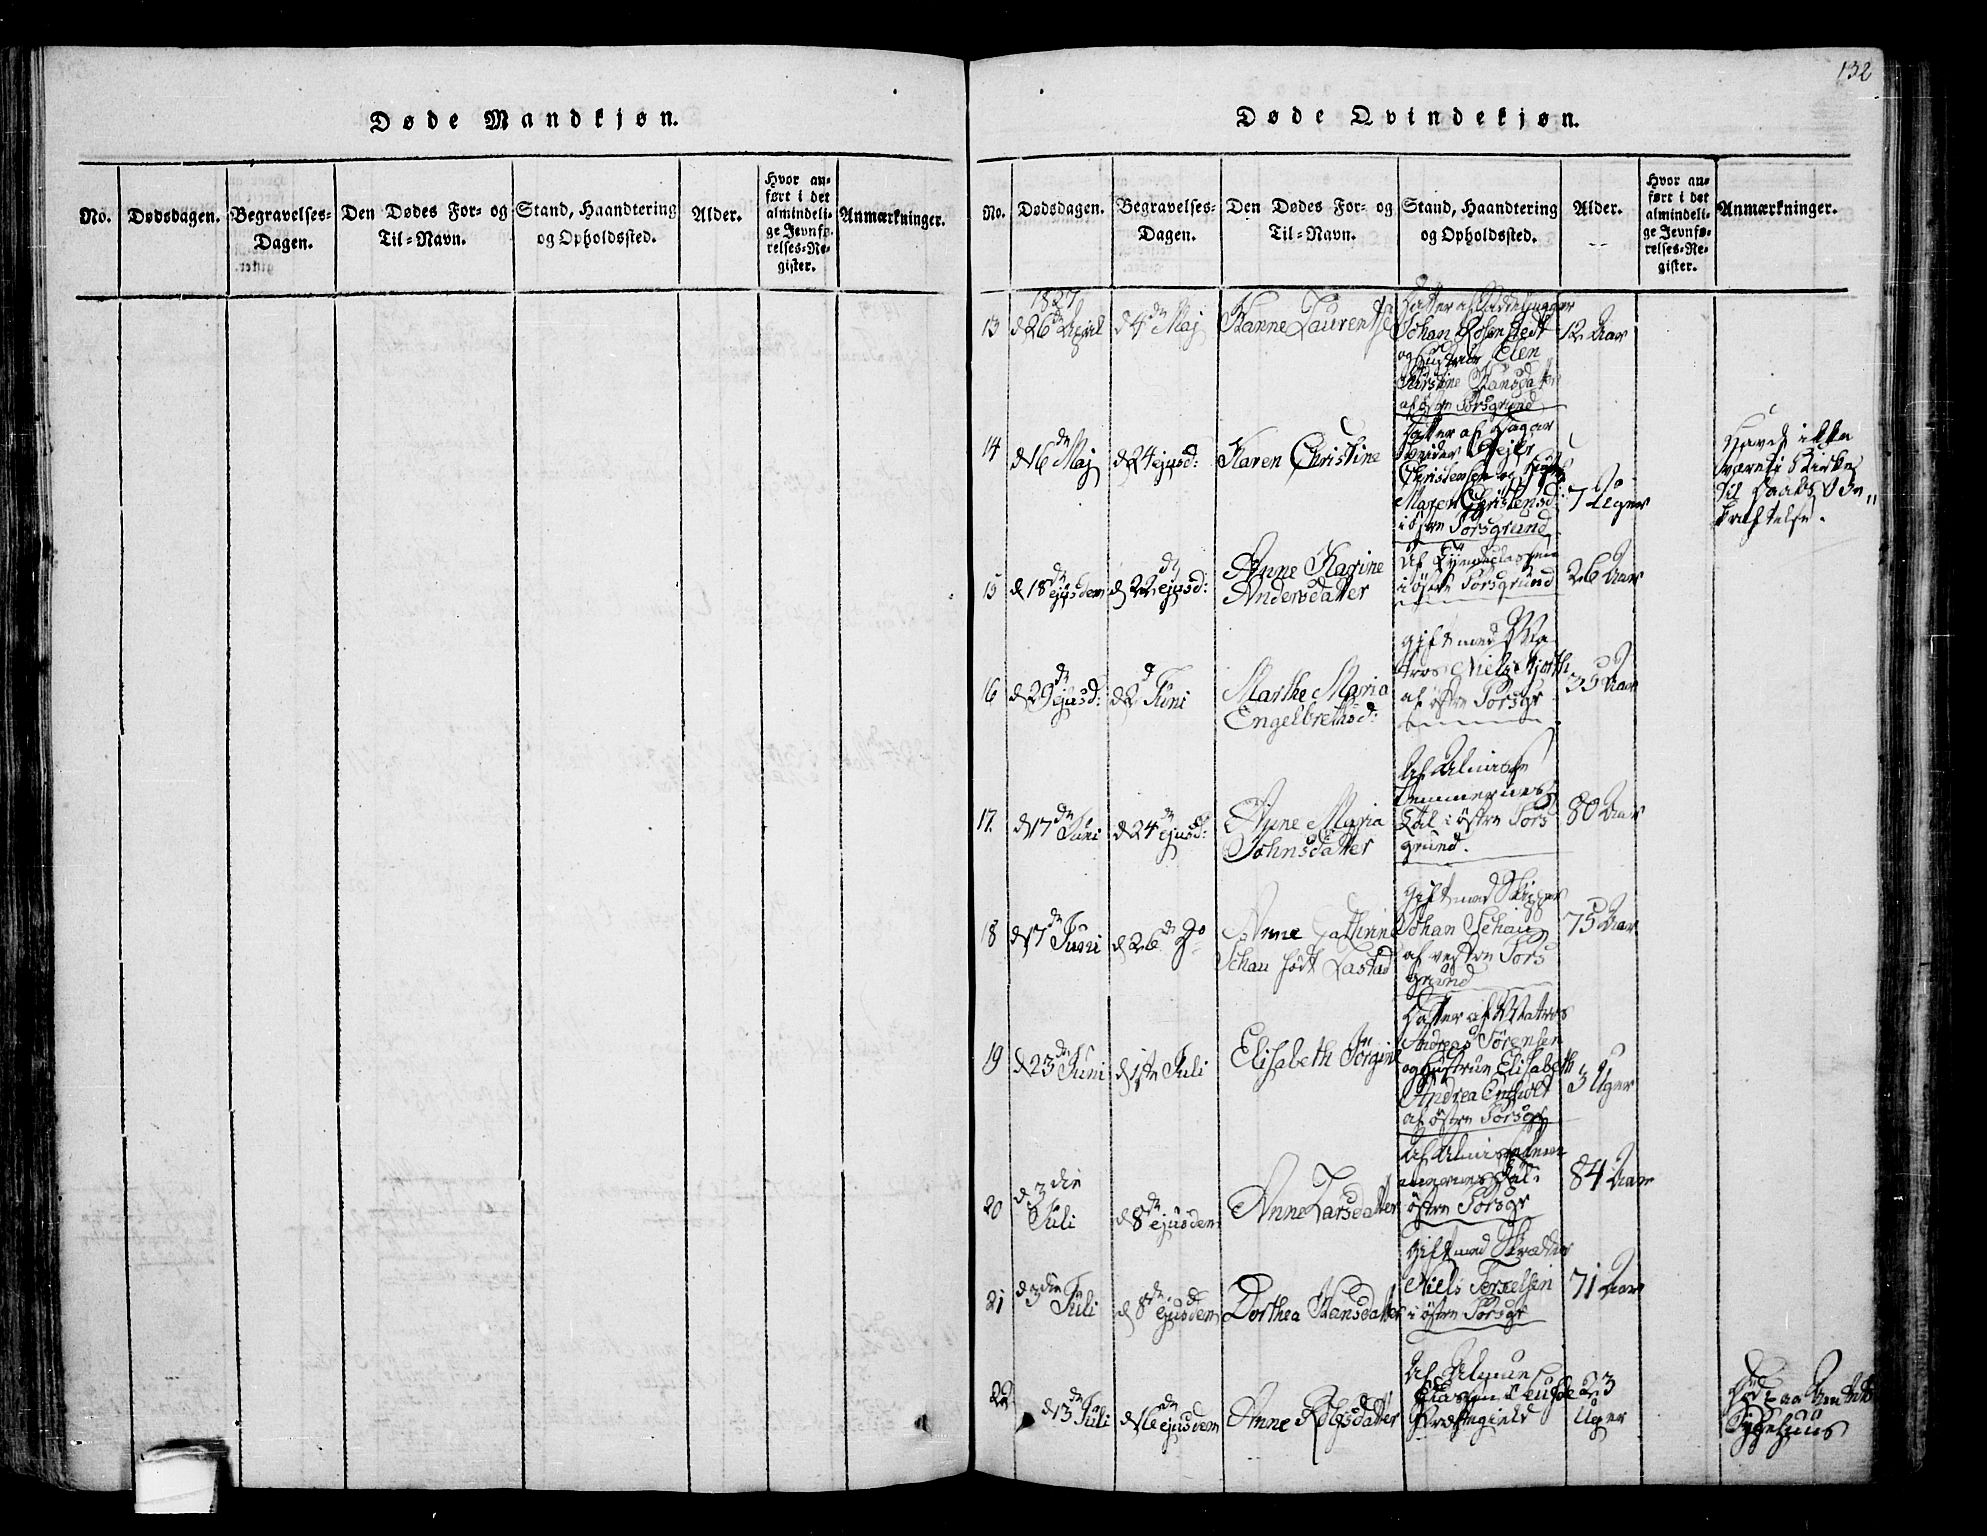 132
Døde Mandkjøn.
No.
Dødsdagen.
Begravelses-
Dagen.
Den Dødes For- og
Til-Navn.
Stand, Haandtering
og Opholdssted.
Alder.
Hvor an-
ført i det
almindeli-
ge Jevnfø-
relses-Re-
gister.
Anmærkninger.
Døde Qvindekjøn.
No.
Dødsdagen.
Begravelses-
Dagen.
Den Dødes For- og
Til-Navn.
Stand, Haandtering
og Opholdssted.
Alder.
Hvor an-
ført i det
almindeli-
ge Jevnfø-
relses-Re-
gister.
Anmærkninger.
1827
13
d 26de April
d 4de Maj
Hanne Laurentja
Datter af
Johan Rosenstedt
og Hustrue Elen
Kirstine Hansdatter
af østre Porsgrund
12 Aar
14
d 16de Maj
d 24 ejusd:
Karen Christine
Datter af Dagar
beider Gejler
Christensen og Hustr
Maren Christensd:
i østre Porsgrund
7 Uger
Havde ikke
været i Kirke
til Daabs Be"
kræftelse.
15
d 18de ejusdem
d 22de ejusd:
Anne Karine
Andersdatter
i østre Porsgrund
26 Aar
16
d 29de ejusd:
d 2d Juni
Marthe Maria
Engelbrethsd:
gift med Ma
tros Niels Hjorth
af østre Porsgr
35 Aar
17.
d 17de Juni
d 24de ejusd:
Anne Maria
Johnsdatter
Af Almisse
Lemmernes
Tal i østre Pors
grund.
80 Aar
18
d 17de Juni
d 26de Do
Anne Cathrine
Schau født Lastad
gift med Skipper
Johan Schau
af vestre Pors
grund
75 Aar
19
d 23de Juni
d 1ste Juli
Elisabeth Jørgine
Datter af Matros
Andreas Sørensen
og Hustrue Elisabeth
Andrea
af østre Porsgr
3 Uger
20
d 3die
Juli
d 8de ejusdem
Anne Larsdatter
Af Almisselem
mernes Tal i
østre Porsgr
84 Aar
21
d 3die Juli
d 8de ejusdem
Dorthea Hansdatter
gift med Skrædder
Niels Torkelsen
i østre Porsgr
71 Aar
22
d 13de Juli
d 16de ejusdem
Anne Rolfsdatter
Af Almues
Klassen
Præstegield
23
Uger
Død paa
Sygehuus